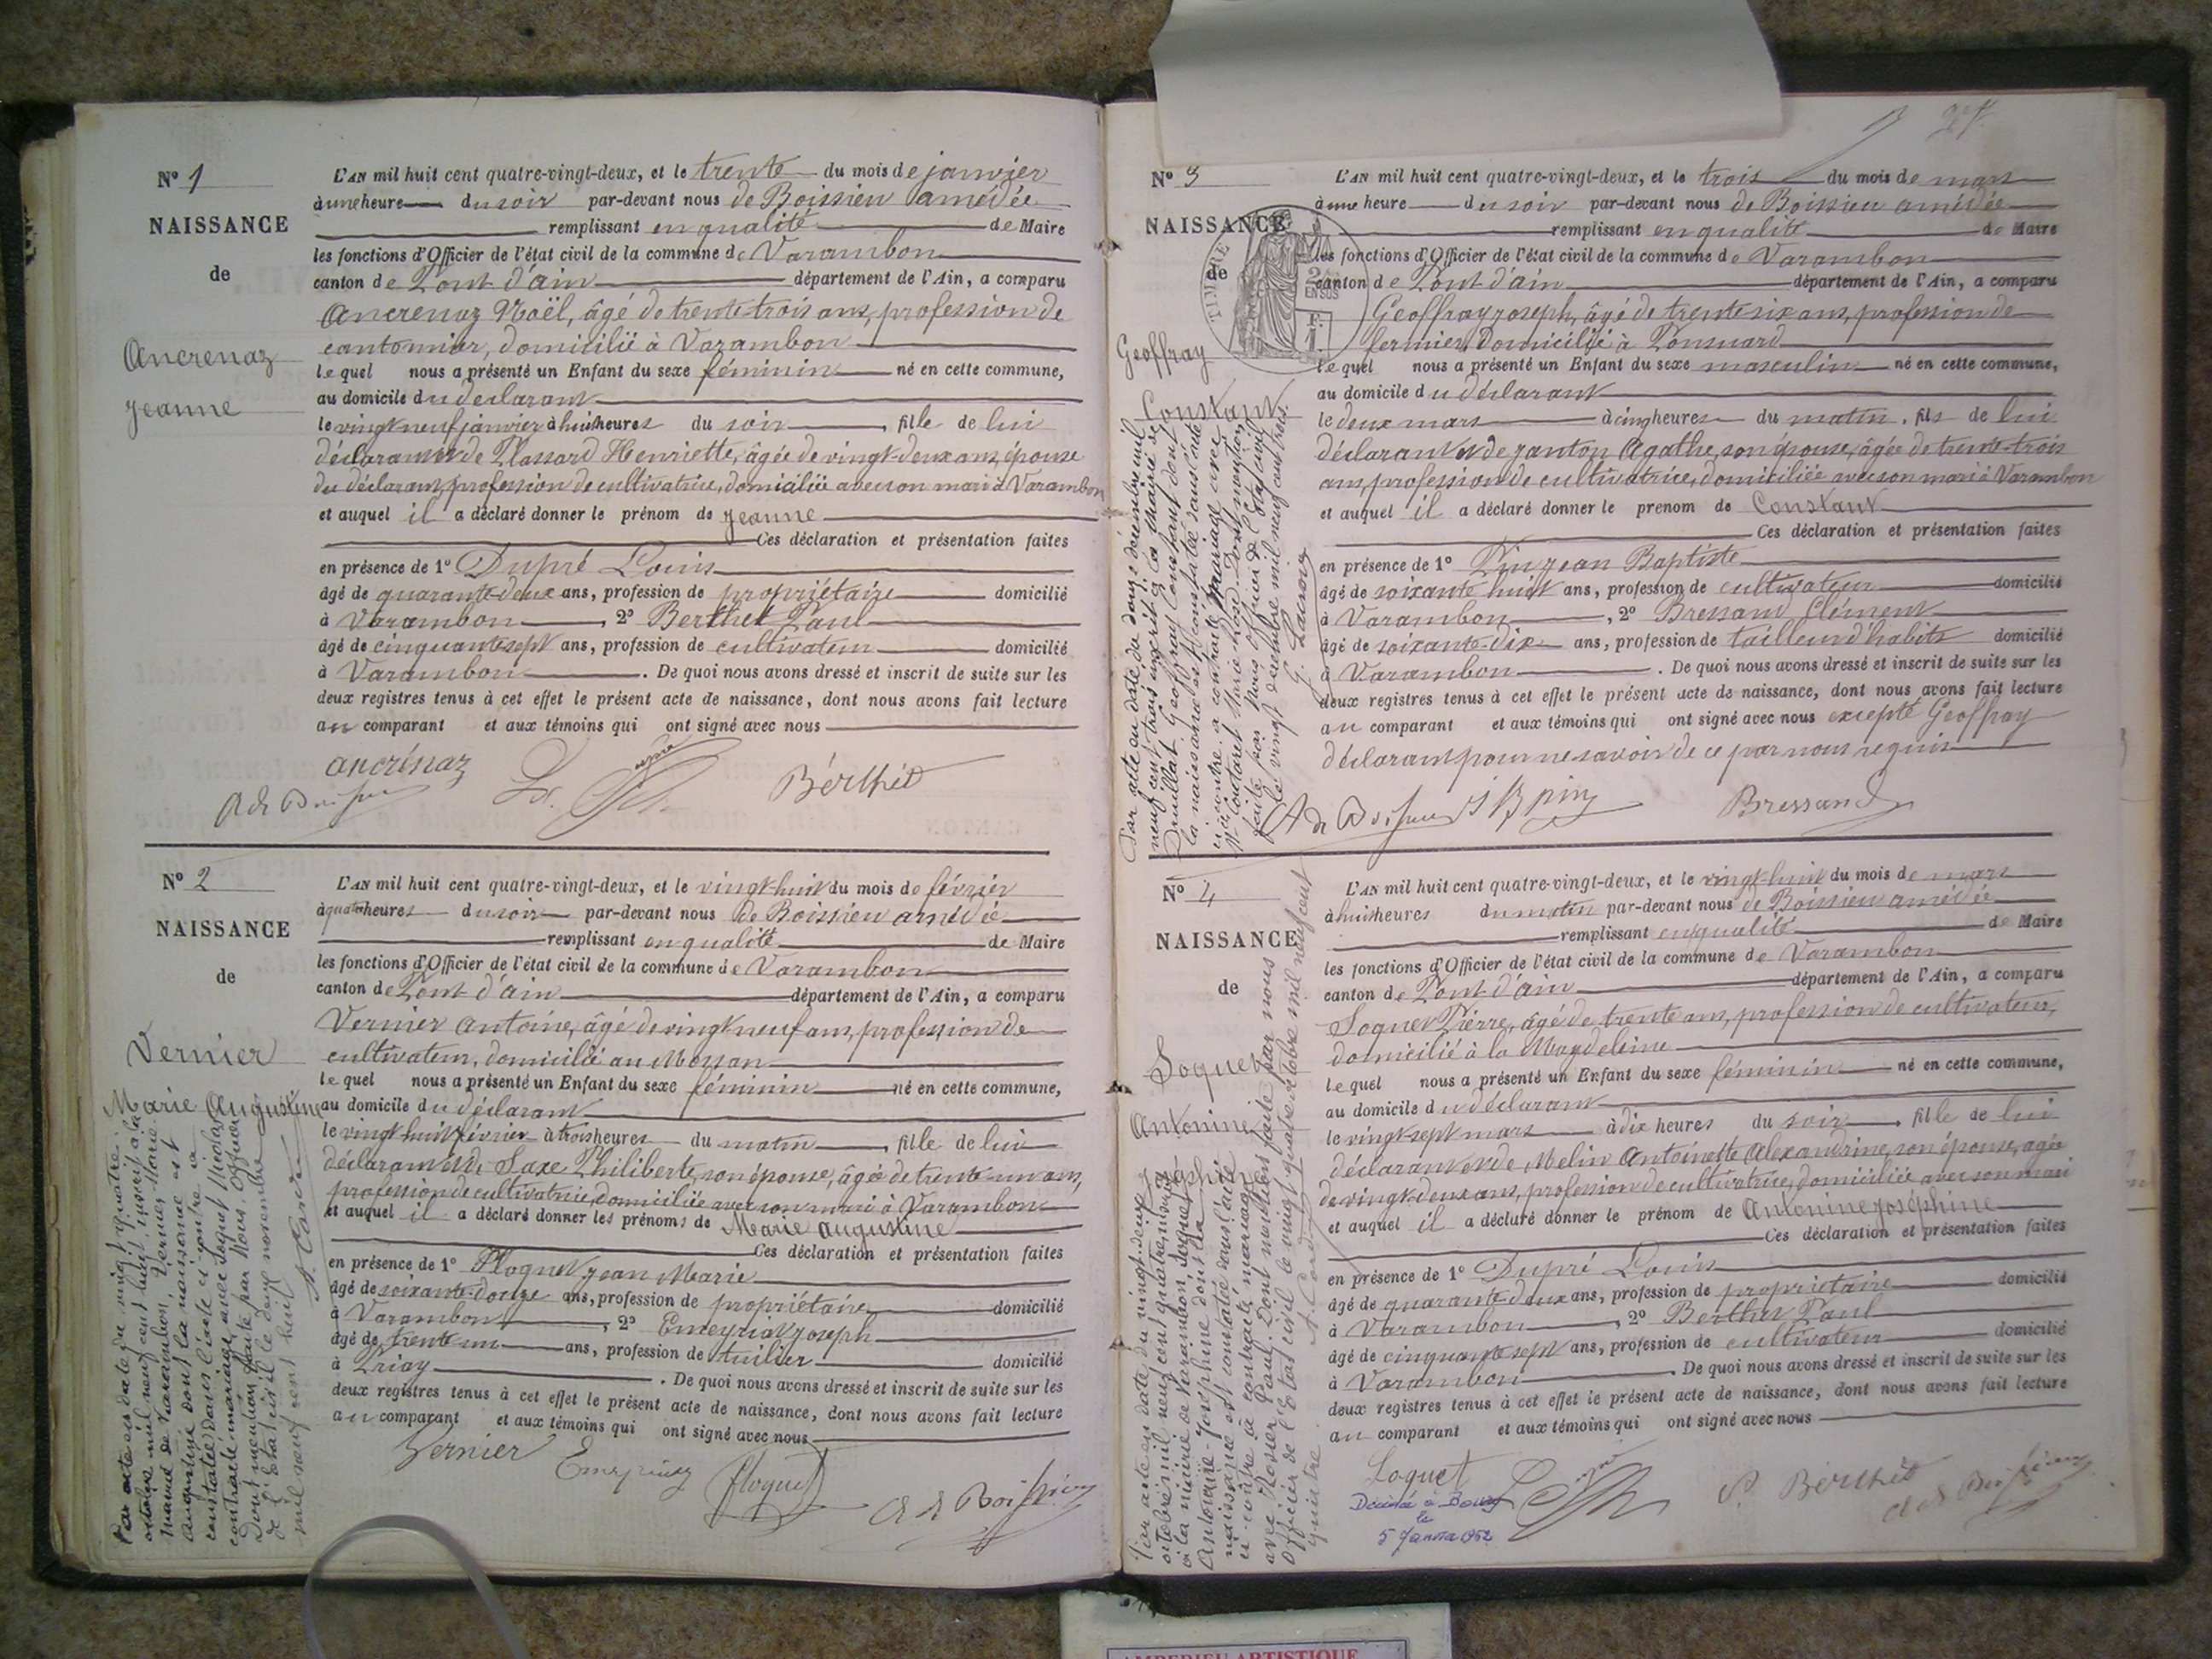 Nº 1
NAISSANCE
de
Ancrenaz
Jeanne
L'AN mil huit cent quatre-vingt-deux, et le trente du mois de janvier
à une heure du soir par-devant nous de Boissieu Amédée
remplissant en qualité de Maire
les fonctions d'Officier de l'état civil de la commune de Varambon
canton de Pont d'ain département de l'Ain, a comparu
Ancrenaz Noël, âgé de trente-trois ans, profession de
cantonnier, domicilié à Varambon
lequel nous a présenté un Enfant du sexe féminin né en cette commune,
au domicile du déclarant
le vingt neuf janvier à huit heures du soir, fille de lui
déclarant et de Plassard Henriette, âgée de vingt-deux ans, épouse
du déclarant, profession de cultivatrice, domiciliée avec son mari à Varambon
et auquel il a déclaré donner le prénom de Jeanne
Ces déclaration et présentation faites
en présence de 1º Dupré Louis
âgé de quarante-deux ans, profession de propriétaire domicilié
à Varambon, 2º Berthet Paul
âgé de cinquante sept ans, profession de cultivateur domicilié
à Varambon. De quoi nous avons dressé et inscrit de suite sur les
deux registres tenus à cet effet le présent acte de naissance, dont nous avons fait lecture
au comparant et aux témoins qui ont signé avec nous
ancrénaz
Bérthet
Nº 2
NAISSANCE
de
Vernier
Marie Augustine
L'AN mil huit cent quatre-vingt-deux, et le vingt-huit du mois de février
à quatre heures du soir par-devant nous de Boissieu amédée
remplissant en qualité de Maire
les fonctions d'Officier de l'état civil de la commune de Varambon
canton de Pont d'ain département de l'Ain, a comparu
Vernier Antoine, âgé de vingt neuf ans, profession de
cultivateur, domicilié au
lequel nous a présenté un Enfant du sexe féminin né en cette commune,
au domicile du déclarant
le vingt huit février à trois heures du matin, fille de lui
déclarant et de Saxe Philiberte, son épouse, âgée de trente-un ans,
profession de cultivatrice, domiciliée avec son mari à Varambon
et auquel il a déclaré donner les prénoms de Marie Augustine
Ces déclaration et présentation faites
en présence de 1º Floquet Jean Marie
âgé de soixante-douze ans, profession de propriétaire domicilié
à Varambon, 2º Emeyriat Joseph
âgé de trente un ans, profession de tuilier domicilié
à Priay. De quoi nous avons dressé et inscrit de suite sur les
deux registres tenus à cet effet le présent acte de naissance, dont nous avons fait lecture
au comparant et aux témoins qui ont signé avec nous
Vernier
floquet
A de Boissieu
Par acte en date du vingt quatre
octobre mil neuf cent huit, inscrit à la
mairie de Varambon, Vernier Marie
Augustine dont la naissance est
constatée dans l'acte ci contre a
contracté mariage avec Soquet Nicolas
Dont mention faite par Nous Officier
de l'état civil le deux novembre
mil neuf cent huit
Nº 3
NAISSANCE
de
TIMBRE
2/10
EN SUS
Geoffray
Constant
L'AN mil huit cent quatre-vingt-deux, et le trois du mois de mars
à une heure du soir par-devant nous de Boissieu amédée
remplissant en qualité de Maire
les fonctions d'Officier de l'état civil de la commune de Varambon
canton de Pont d'ain département de l'Ain, a comparu
Geoffray Joseph, âgé de trente six ans, profession de
fermier domicilié à
lequel nous a présenté un Enfant du sexe masculin né en cette commune,
au domicile du déclarant
le deux mars à cinq heures du matin, fils de lui
déclarant et de Janton Agathe, son épouse, âgée de trente-trois
ans, profession de cultivatrice, domiciliée avec son mari à Varambon
et auquel il a déclaré donner le prenom de Constant
Ces déclaration et présentation faites
en présence de 1º Pin Jean Baptiste
âgé de soixante huit ans, profession de cultivateur domicilié
à Varambon, 2º Bressand Clément
âgé de soixante-dix ans, profession de tailleur d'habits domicilié
à Varambon. De quoi nous avons dressé et inscrit de suite sur les
deux registres tenus à cet effet le présent acte de naissance, dont nous avons fait lecture
au comparant et aux témoins qui ont signé avec nous excepté Geoffray
déclarant pour ne savoir de ce par nous requis
A de Boissieu
J B pin
Bressand
Par acte en date du douze décembre mil
neuf cent trois inscrit à la mairie de
Druillat Geoffray Constant dont
la naissance est constatée dans l'acte
ci-contre a contracté mariage avec
Marie Rose Dont mention
faite par Nous officier de l'état civil
le vingt décembre mil neuf cent trois.
G. Lacroix
Nº 4
NAISSANCE
de
Soquet
Antonine
L'AN mil huit cent quatre-vingt-deux, et le vingt-huit du mois de mars
à huit heures du matin par-devant nous de Boissieu amédée
remplissant en qualité de Maire
les fonctions d'Officier de l'état civil de la commune de Varambon
canton de Pont d'ain département de l'Ain, a comparu
Soquet Pierre, âgé de trente ans, profession de cultivateur,
domicilié à la Magdeleine
lequel nous a présenté un Enfant du sexe féminin né en cette commune,
au domicile du déclarant
le vingt sept mars à dix heures du soir, fille de lui
déclarant et de Melin Antoinette Alexandrine, son épouse, agée
de vingt-deux ans, profession de cultivatrice, domiciliée avec son mari
et auquel il a déclaré donner le prénom de Antonine Joséphine
Ces déclaration et présentation faites
en présence de 1º Dupré Louis
âgé de quarante-deux ans, profession de propriétaire domicilié
à Varambon, 2º Berthet Paul
âgé de cinquante sept ans, profession de cultivateur domicilié
à Varambon. De quoi nous avons dressé et inscrit de suite sur les
deux registres tenus à cet effet le présent acte de naissance, dont nous avons fait lecture
au comparant et aux témoins qui ont signé avec nous
Soquet
P. Bérthet
Décédée à Bourg
le
5 Janvier 1952
Par acte en date du vingt-deux
octobre mil neuf cent quatre, inscrit
à la mairie de Varambon, Soquet
Antonine-Joséphine dont la
naissance est constatée dans l'acte
ci-contre a contracté mariage
avec Rosier Paul. Dont mention faite par nous
Officier de l'Etat civil le vingt quatre octobre mil neuf cent
quatre
AMBERIEU ARTISTIQUE